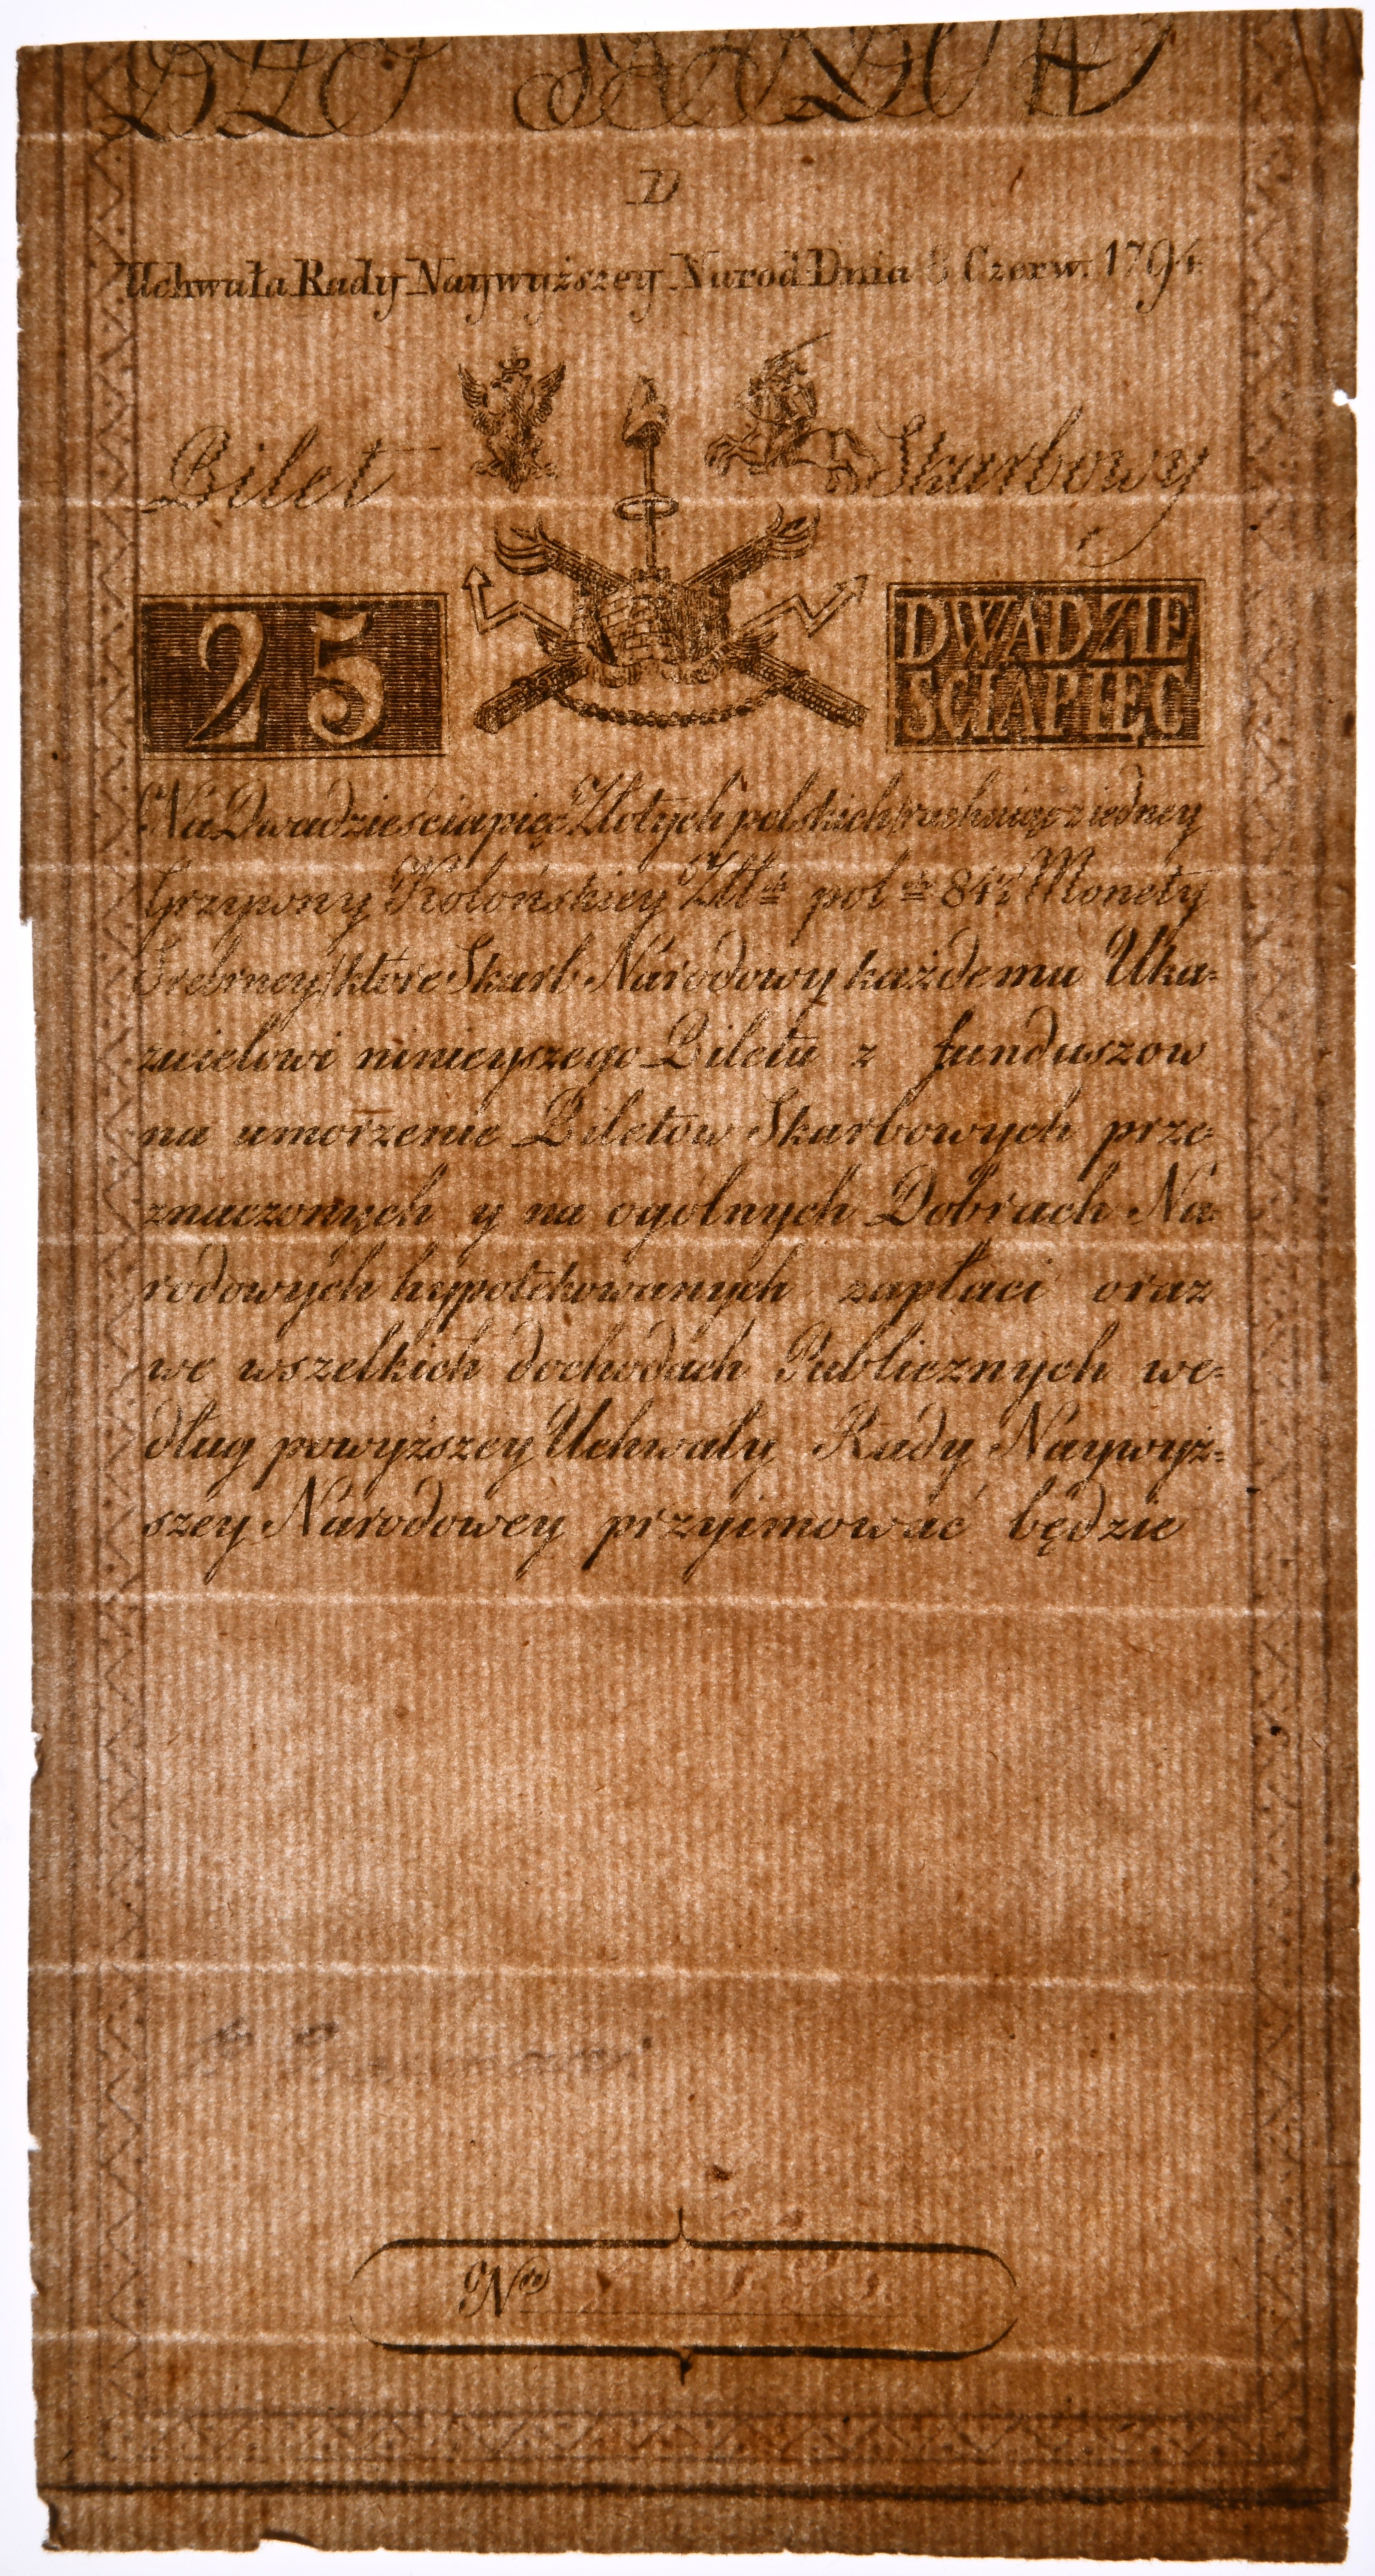 D
Uchwała Rady Naywyższey Narod Dnia 8 Czerw. 1794.
Bilet Skarbowy
25 DWADZIE
SCIAPIĘC
Na Dwadzieściapięć Złotych polskich (rachuiąc z iedney
Grzywny Kolońskiey Złł ch pol ch 84½ Monety
Srebrney) które Skarb Narodowy każdemu Uka=
zicielowi ninieyszego Biletu z funduszow
na umorzenie Biletow Skarbowych prze=
znaczonych y na ogólnych Dobrach Na=
rodowych hypotekowanych zapłaci oraz
we wszelkich dochodach Publicznych we=
dług powyższey Uchwały Rady Naywyż=
szey Narodowey przyimować będzie
Nro